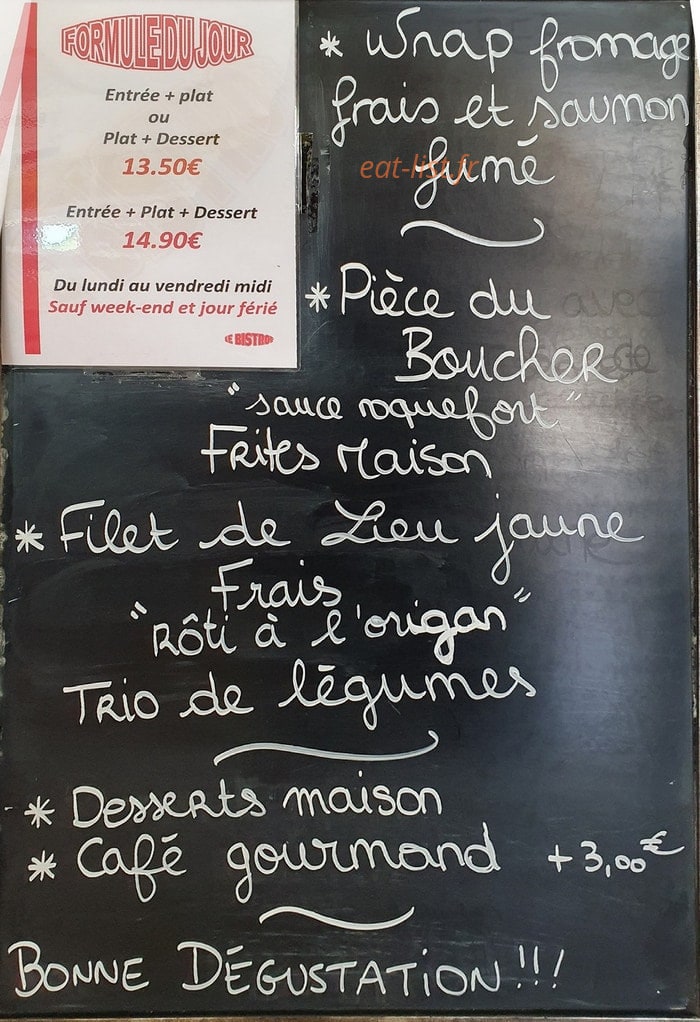 FORMULE DU JOUR
Entrée + plat
ou
Plat + Dessert
13.50€
Entrée + Plat + Dessert
14.90€
Du lundi au vendredi midi
Sauf week-end et jour férié
LE BISTROP
* Wrap fromage
frais et saumon
fumé
eat-list.fr
* Pièce du
BOUCHER
"sauce roquefort"
Frites Maison
* Filet de Lieu jaune
Frais
"Rôti à l'origan"
TRIO de légumes
* Desserts maison
* Café gourmand + 3,00€
BONNE DÉGUSTATION !!!